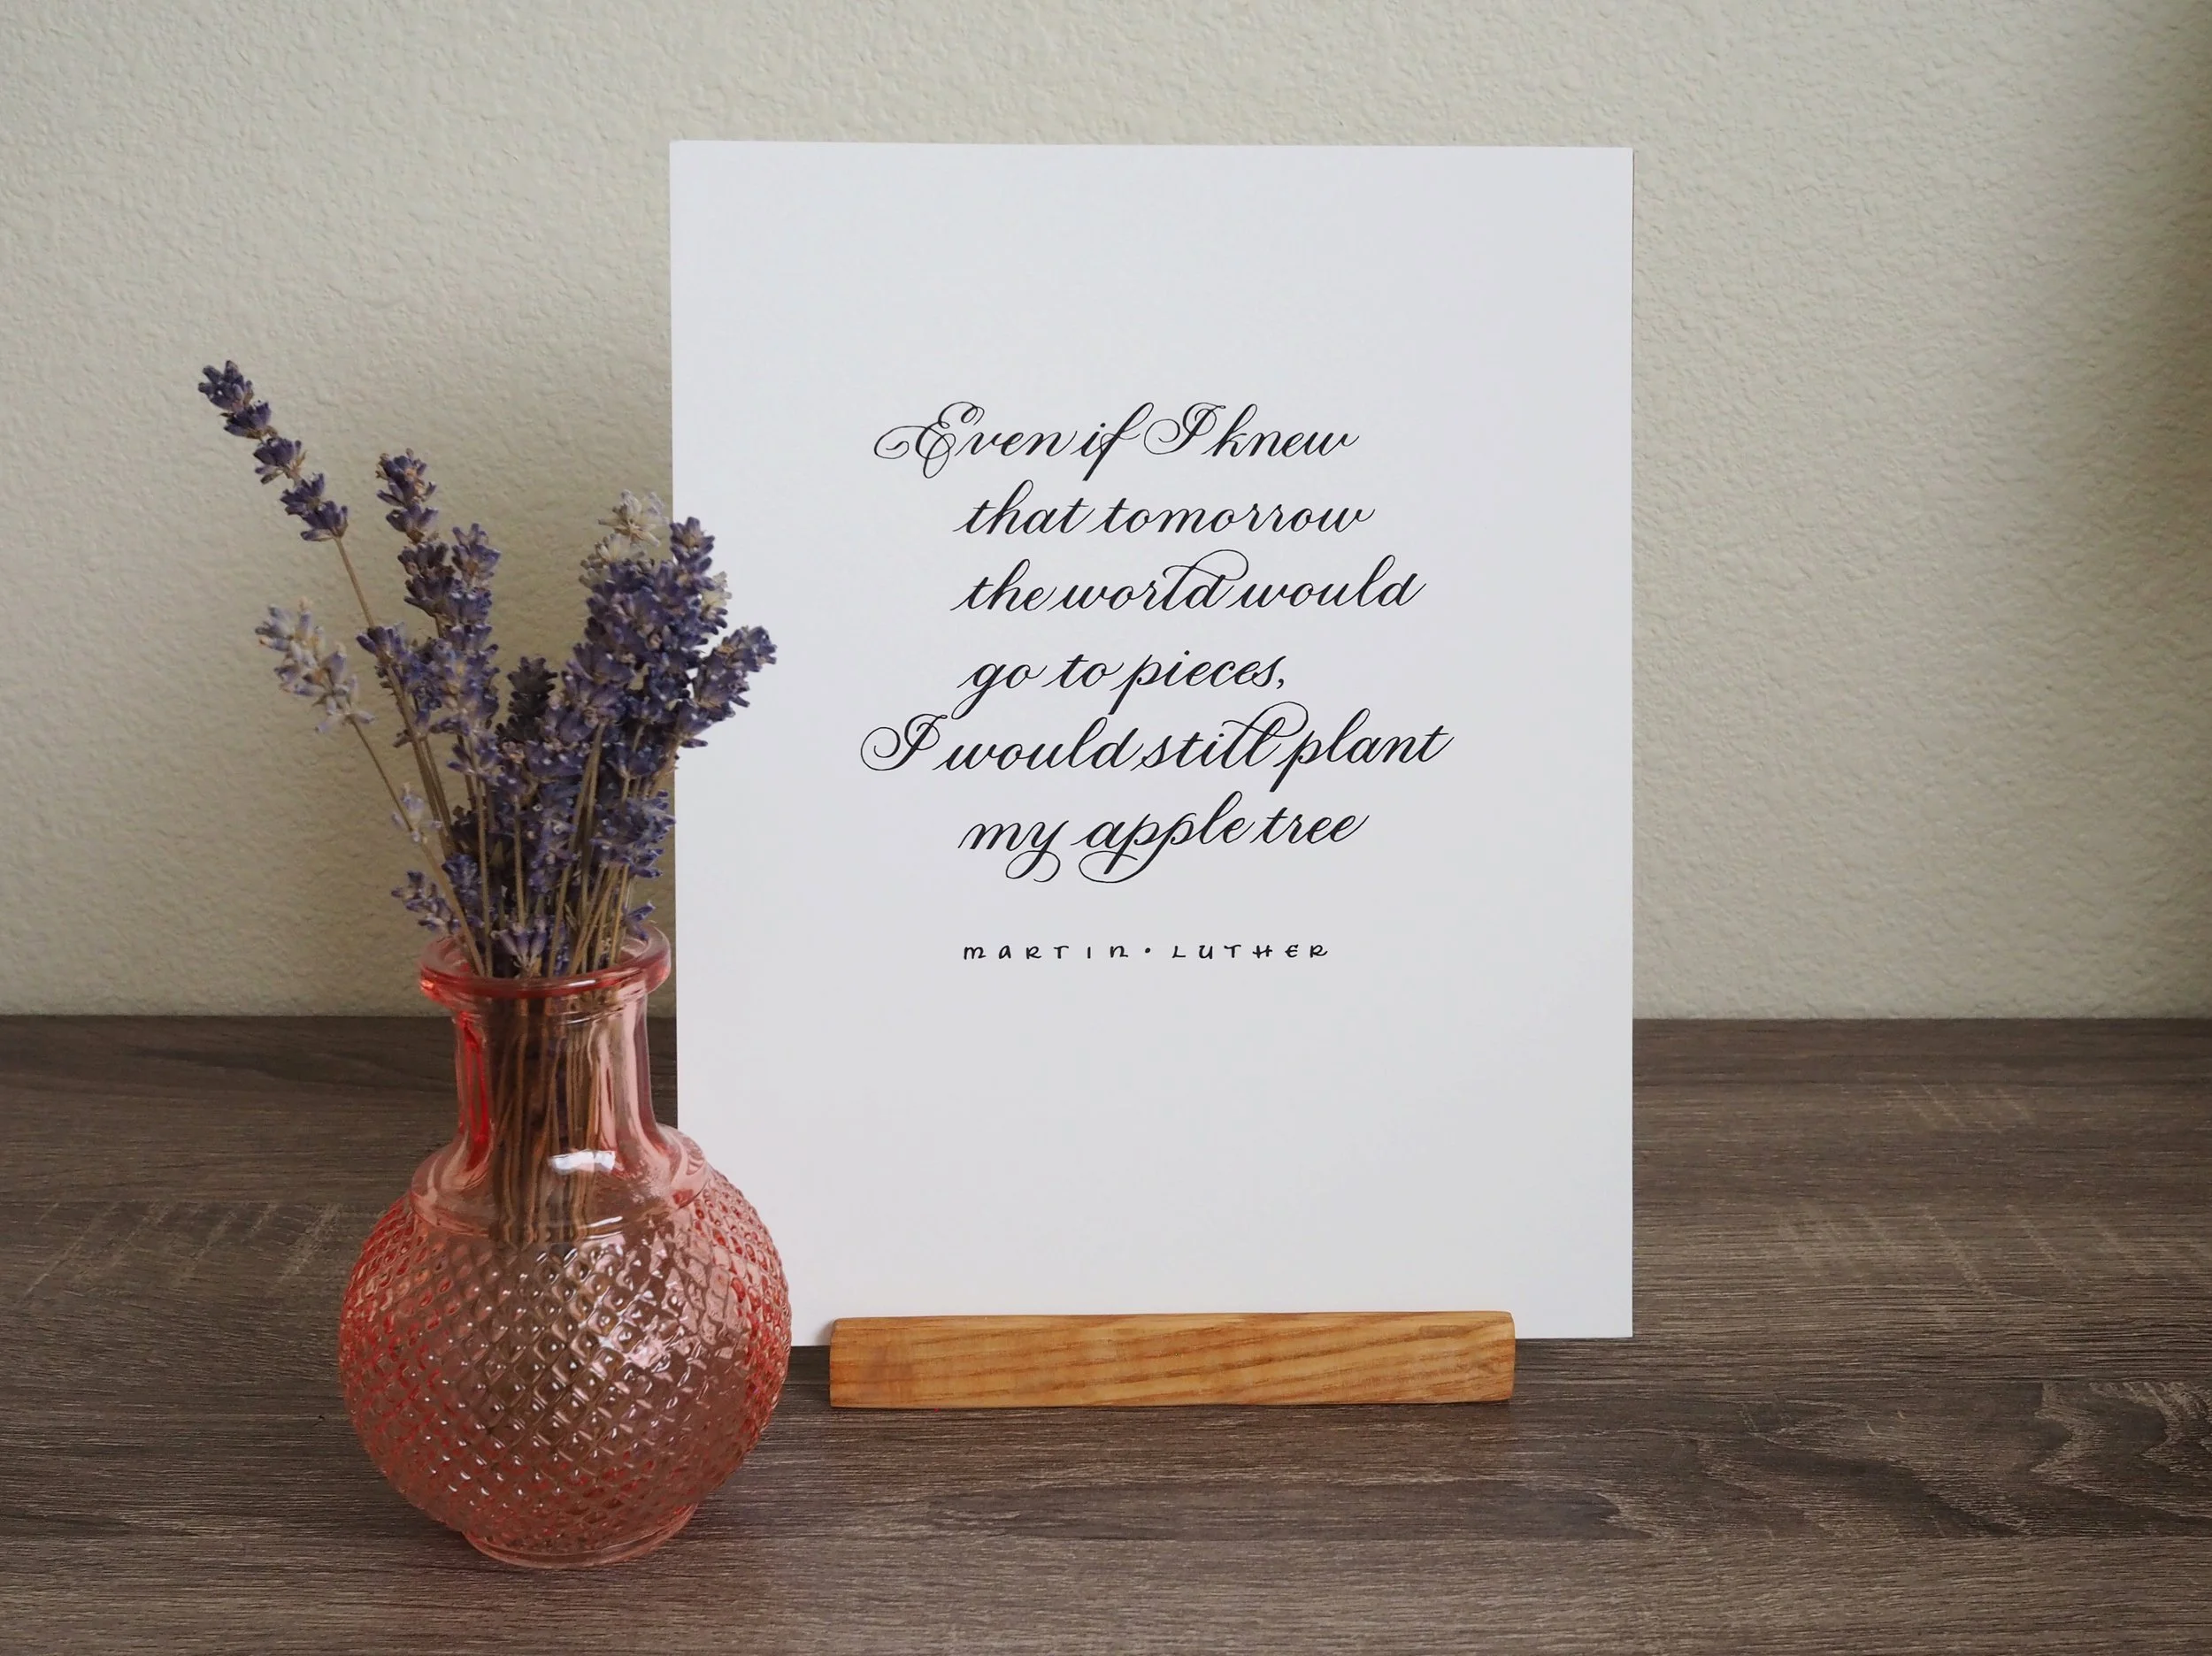 Even if I knew
that tomorrow
the world would
go to pieces,
I would still plant
my apple tree
MARTIN • LUTHER